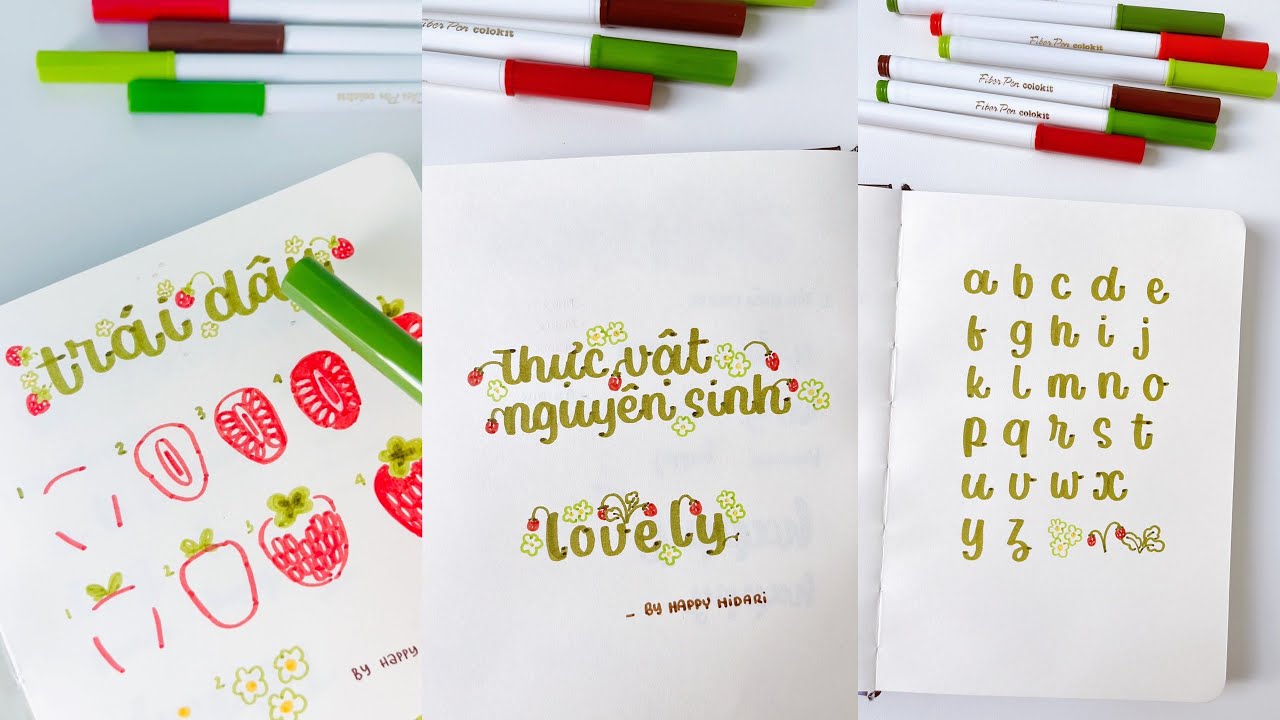 Pen colokit
trái dâu
1 2 3 4
1 2 3 4
2
BY HAPPY
thực vật
nguyên sinh
lovely
_ BY HAPPY HIDARI
Fiber Pen colokit
Fiber Pen colokit
Fiber Pen colokit
Fiber Pen colokit
a b c d e
f g h i j
k l m n o
p q r s t
u v w x
y z